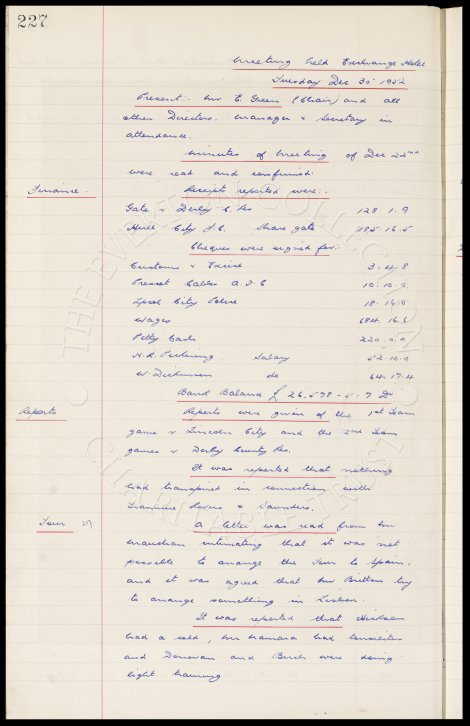 227
Meeting held Exchange Hotel
Tuesday Dec 30 1952
Present:- Mr E. Green (Chair) and all
other Directors. Manager & Secretary in
attendance.
Minutes of Meeting of Dec 22nd
were read and confirmed.
Finance. Receipts reported were:-
Gate v Derby C. Res 128. 1. 9
Hull City F.C. Share gate 185. 16. 5
Cheques were signed for:-
Customs & Excise 3. 4. 8
Prescot Cables A.F.C 10. 10. 0
Lpool City Police 18. 16. 0
Wages 684. 16. 6
Petty Cash 220. 0. 0
H.R. Pickering. Salary 52. 10. 0
W. Dickinson do 64. 17. 4
Bank Balance £ 26,578 - 5 - 7 Dr
Reports Reports were given of the 1st Team
game v Lincoln City and the 2nd Team
games v Derby County Res.
It was reported that nothing
had transpired in connection with
Tranmere Rovers & Saunders.
Tour A letter was read from Mr
intimating that it was not
possible to arrange the Tour to Spain,
and it was agreed that Mr Britton try
to arrange something in Lisbon.
It was reported that Hickson
had a cold, had tonsilitis
and Donovan and Birch were doing
light training.
THE EVERTON COLLECTION
CHARITABLE TRUST